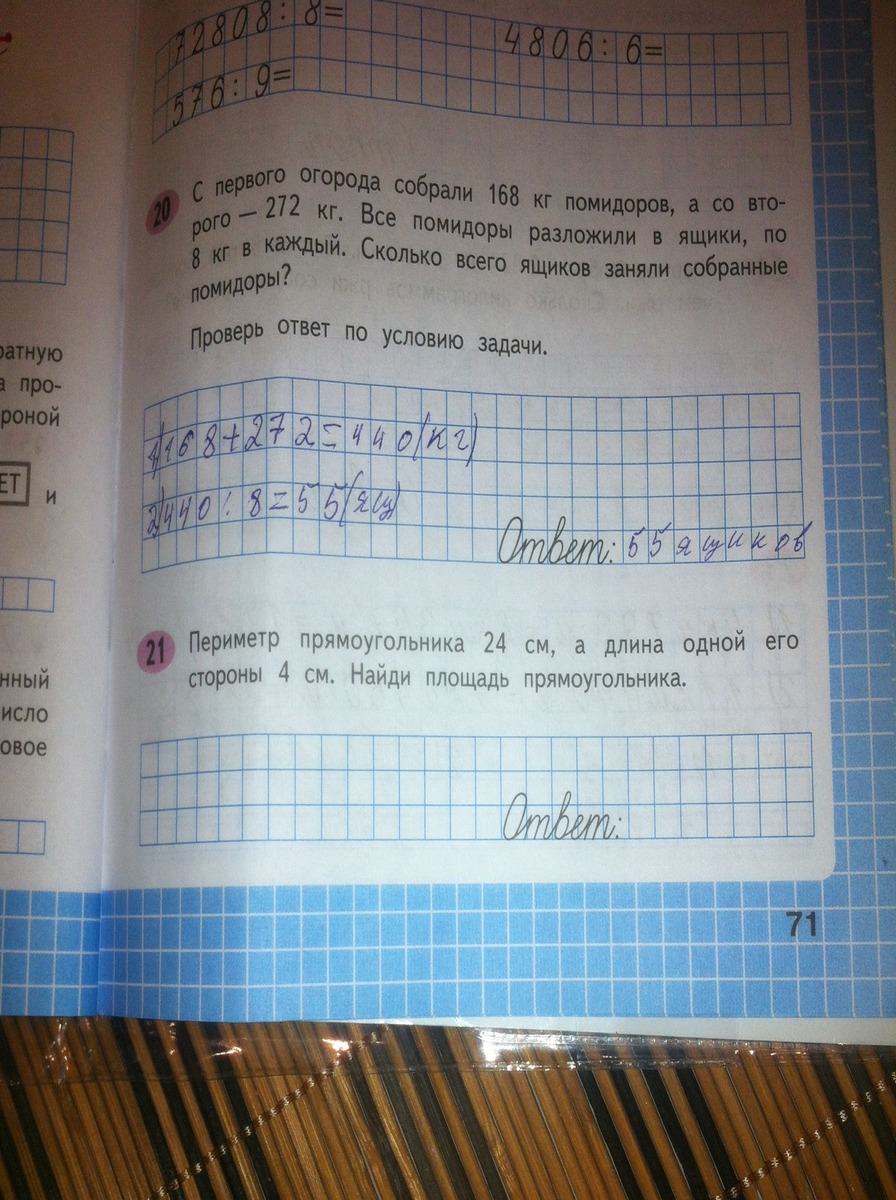 72808: 8=
4806: 6=
576: 9=
20
С первого огорода собрали 168 кг помидоров, а со вто-
рого — 272 кг. Все помидоры разложили в ящики, по
8 кг в каждый. Сколько всего ящиков заняли собранные
помидоры?
Проверь ответ по условию задачи.
1)168+272=440(кг)
2)440:8=55(ящ)
Ответ: 55 ящиков
21
Периметр прямоугольника 24 см, а длина одной его
стороны 4 см. Найди площадь прямоугольника.
Ответ:
71
ратную
а про-
роной
ЕТ и
нный
исло
овое